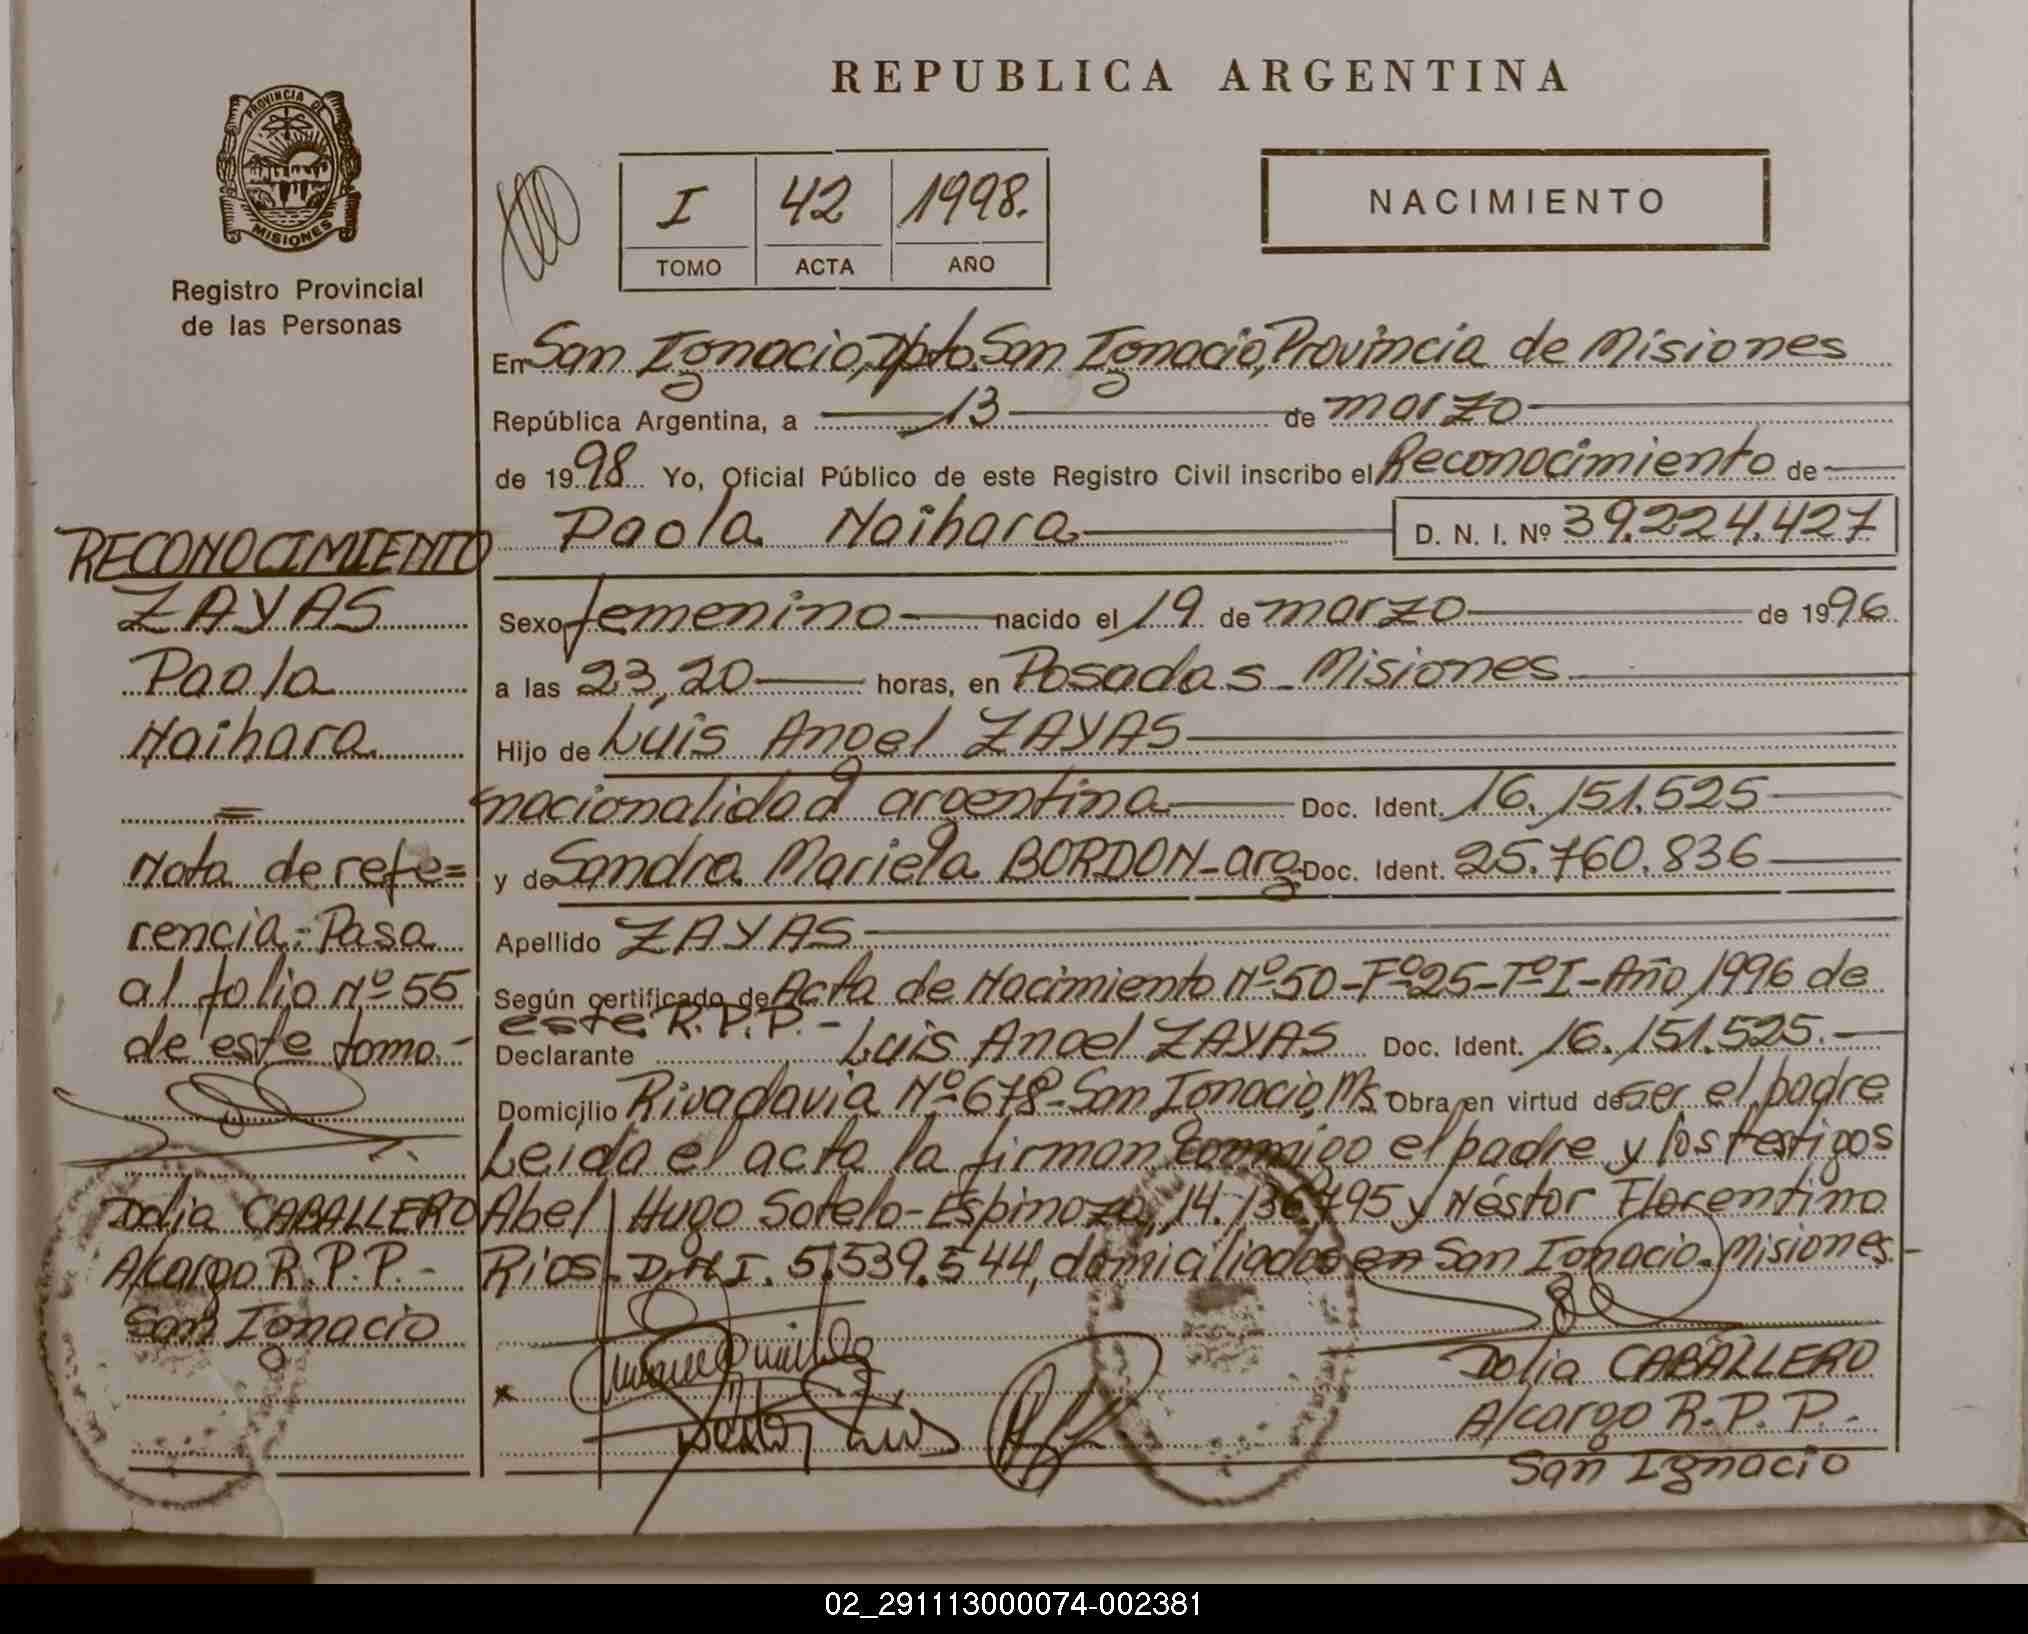 REPUBLICA ARGENTINA
PROVINCIA DE
MISIONES
Registro Provincial
de las Personas
I 42 1998.
TOMO ACTA AÑO
NACIMIENTO
En San Ignacio, Dpto. San Ignacio, Provincia de Misiones
República Argentina, a 13 de marzo
de 1998 Yo, Oficial Público de este Registro Civil inscribo el Reconocimiento de
Paola Naihara D. N. I. Nº 39.224.427
Sexo femenino nacido el 19 de marzo de 1996
a las 23,20 horas, en Posadas - Misiones
Hijo de Luis Angel ZAYAS
nacionalidad argentina Doc. Ident. 16.151.525
y de Sandra Mariela BORDON-arg. Doc. Ident. 25.760.836
Apellido ZAYAS
Según certificado de Acta de Nacimiento Nº50-Fº25-TºI-Año 1996 de
este R.P.P.-
Declarante Luis Angel ZAYAS Doc. Ident. 16.151.525.-
Domicilio Rivadavia Nº 678-San Ignacio, Ms. Obra en virtud de ser el padre
Leida el acta la firman conmigo el padre y los testigos
Abel Hugo Sotelo-Espinoza, 14.136.795 y Néstor Florentino
Rios - D.N.I. 5.539.544, domiciliados en San Ignacio. Misiones.-
x
Nestor Rios
Dolia CABALLERO
A/cargo R.P.P.-
San Ignacio
RECONOCIMIENTO
ZAYAS
Paola
Naihara
=
Nota de refe=
rencia:-Pasa
al folio Nº 55
de este tomo.-
Dolia CABALLERO
A/cargo R.P.P.-
San Ignacio
02_291113000074-002381